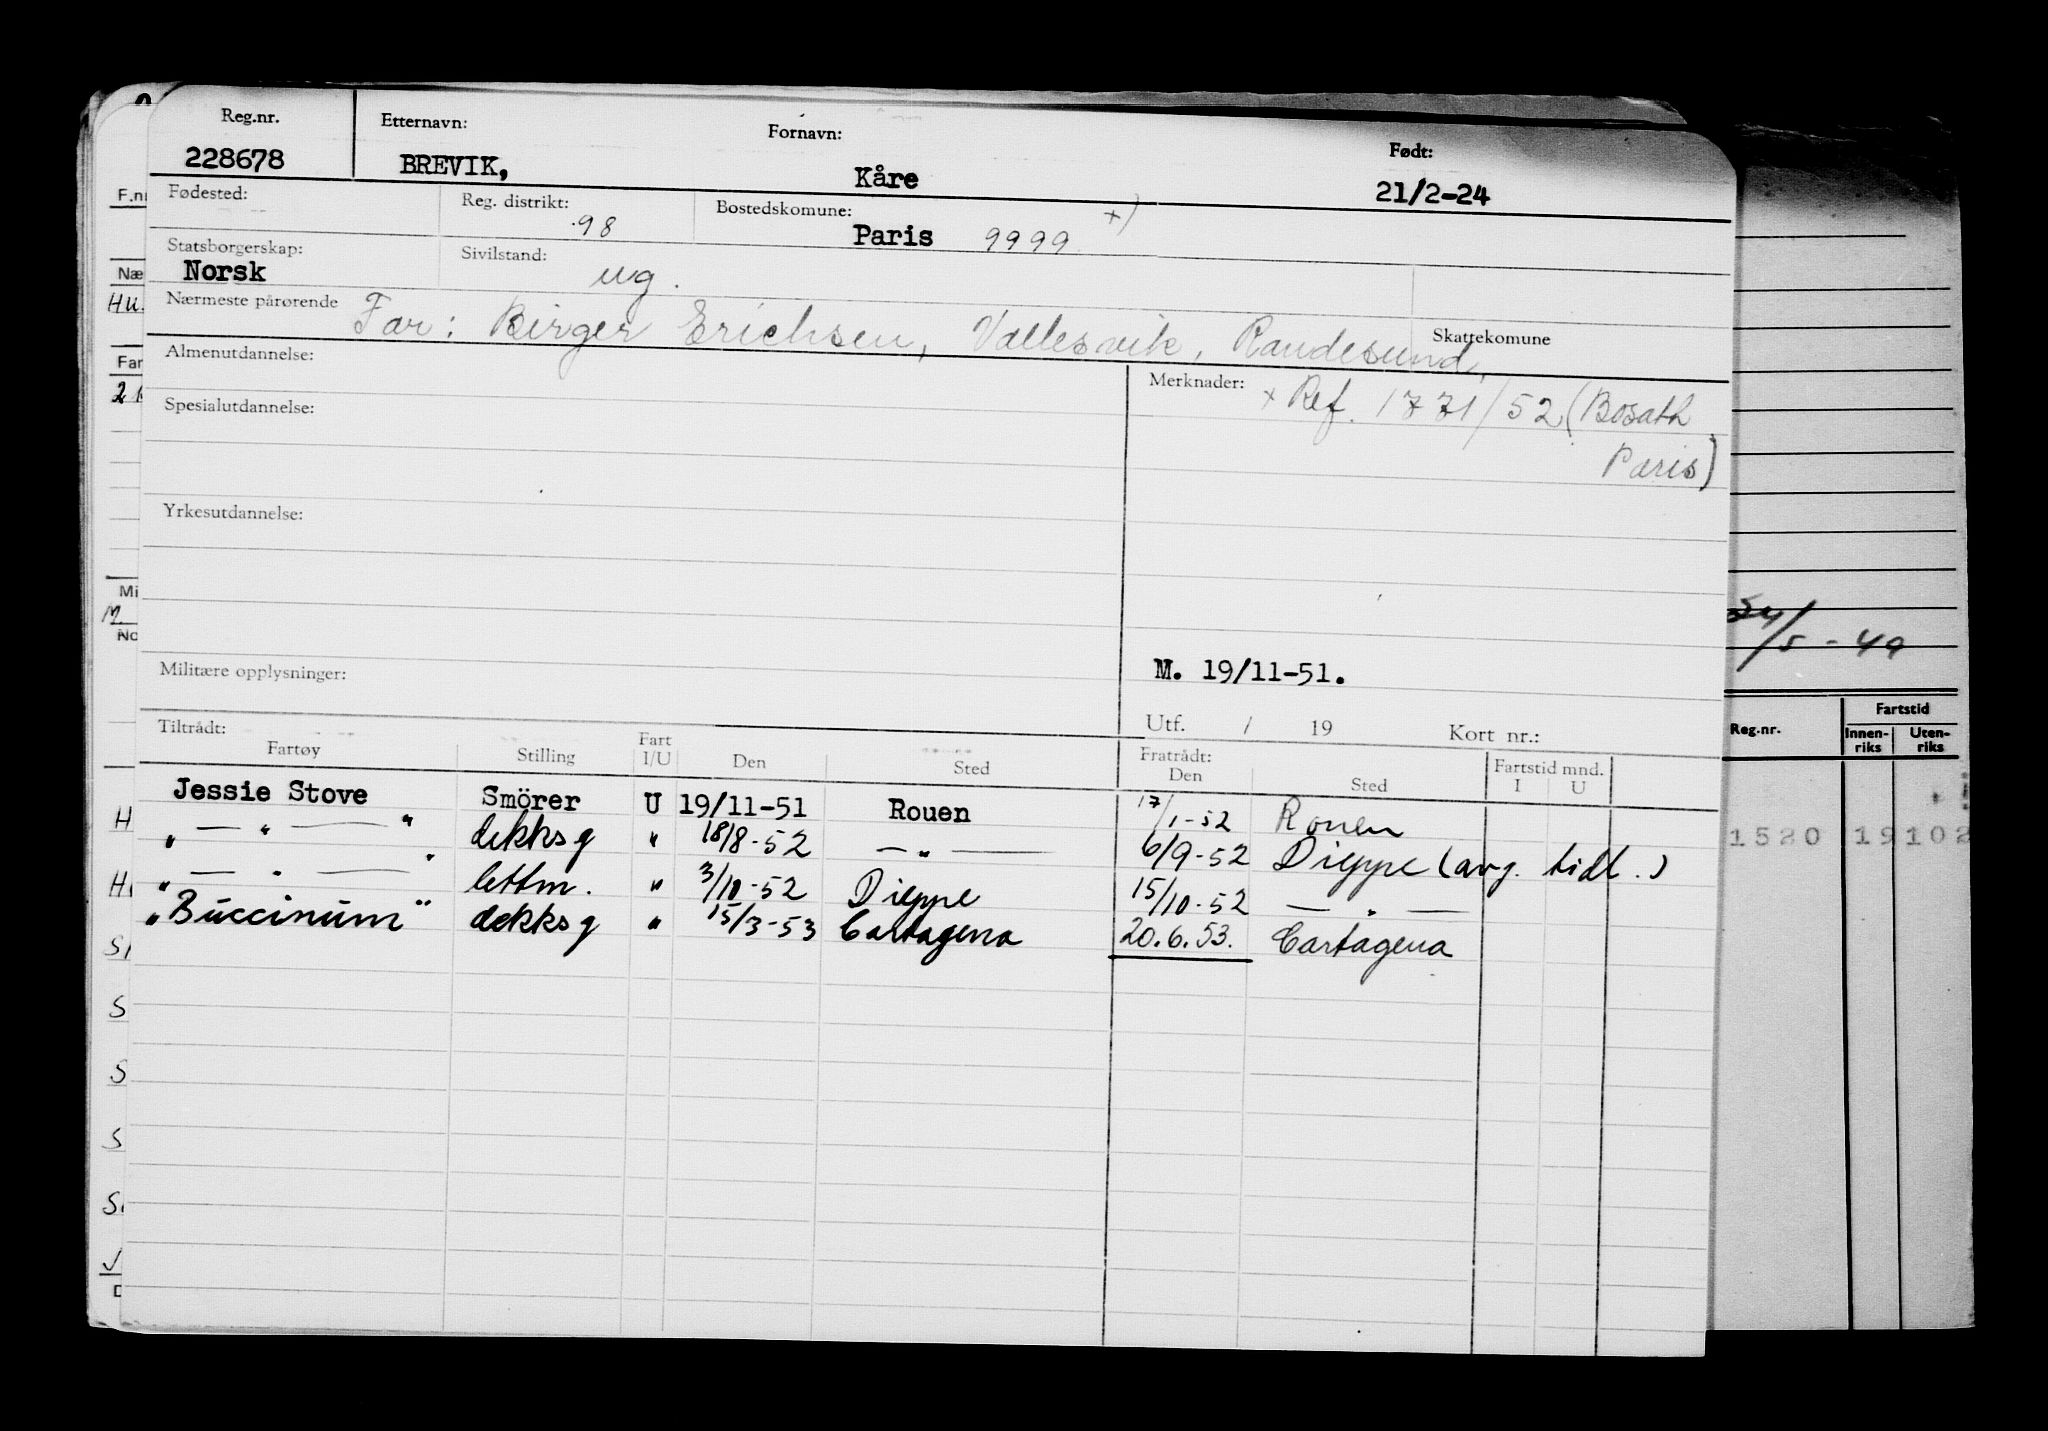 Reg.nr. Etternavn: Fornavn: Født:
228678 BREVIK, Kåre 21/2-24
Fødested: Reg. distrikt: 98 Bostedskomune: Paris 9999 x)
Statsborgerskap: Norsk Sivilstand: ug.
Nærmeste pårørende Far: Birger Erichsen, Vallesvik, Randesund, Skattekomune
Almenutdannelse:
Merknader: x Ref. 1771/52 (Bosath
Paris)
Spesialutdannelse:
Yrkesutdannelse:
Militære opplysninger:
M. 19/11-51.
Utf. / 19 Kort nr.:
Tiltrådt: Fratrådt:
Fartøy Stilling Fart I/U Den Sted Den Sted Fartstid mnd. I U
Jessie Stove Smörer U 19/11-51 Rouen 17/1-52 Rouen
" — " — " dekksg " 18/8-52 — " — 6/9-52 Dieppe (avg. tidl.)
" — " — " lettm. " 3/10-52 Dieppe 15/10-52 — " —
"Buccinum" dekksg " 15/3-53 Cartagena 20.6.53. Cartagena
F.nr
Næ
Hu.
Far
Mi
No
5/5-49
Reg.nr. Fartstid
Innen-riks Uten-riks
1520 19102